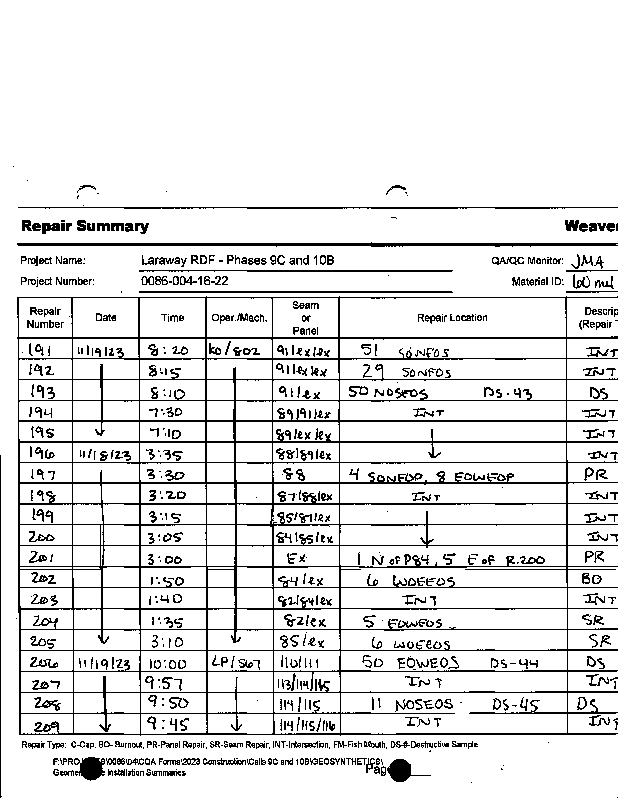 Repair Summary Weaver
Project Name: Laraway RDF - Phases 9C and 10B QA/QC Monitor: JMA
Project Number: 0086-004-16-22 Material ID: 60 mil
Repair Number Date Time Oper./Mach. Seam or Panel Repair Location Descrip (Repair T
191 11/19/23 8:20 KO/802 91/ex/ex 51 SONEOS INT
192 8:15 91/ex/ex 29 SONFOS INT
193 8:10 91/ex 50 NOSEOS DS-43 DS
194 7:30 89/91/ex INT INT
195 7:10 89/ex/ex INT
196 11/18/23 3:35 88/89/ex INT
197 3:30 88 4 SONEOP, 8 EOWEOP PR
198 3:20 87/88/ex INT INT
199 3:15 85/87/ex INT
200 3:05 84/85/ex INT
201 3:00 Ex 1 N of P84, 5 E of R.200 PR
202 1:50 84/ex 6 WOEEOS BO
203 1:40 82/84/ex INT INT
204 1:35 82/ex 5 EOWEOS SR
205 3:10 85/ex 6 WOEEOS SR
206 11/19/23 10:00 LP/567 110/111 50 EOWEOS DS-44 DS
207 9:57 113/114/115 INT INT
208 9:50 114/115 11 NOSEOS DS-45 DS
209 9:45 114/115/116 INT INT
Repair Type: C-Cap, BO- Burnout, PR-Panel Repair, SR-Seam Repair, INT-Intersection, FM-Fish Mouth, DS-#-Destructive Sample
2023 Construction\Cells 9C and 10B\GEOSYNTHETICS\
Installation Summaries Page